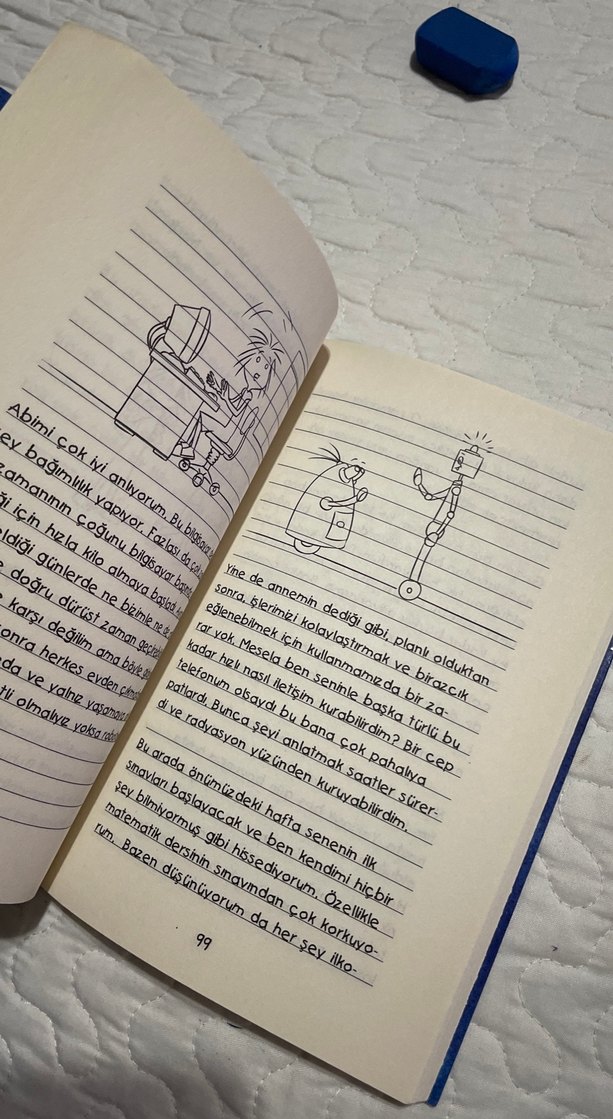 Abimi çok iyi anlıyorum. Bu bilgisayar
şey bağımlılık yapıyor. Fazlası da çok
zamanının çoğunu bilgisayar başında
için hızla kilo almaya başladı.
geldiği günlerde ne bizimle ne de
doğru dürüst zaman geçirebiliyor
karşı değilim ama böyle
sonra herkes evden çıkmadan
ve yalnız yaşamaya
olmalıyız yoksa
Yine de annemin dediği gibi, planlı olduktan
sonra, işlerimizi kolaylaştırmak ve birazcık
eğlenebilmek için kullanmamızda bir za-
rar yok. Mesela ben seninle başka türlü bu
kadar hızlı nasıl iletişim kurabilirdim? Bir cep
telefonum olsaydı bu bana çok pahalıya
patlardı. Bunca şeyi anlatmak saatler sürer-
di ve radyasyon yüzünden kuruyabilirdim.
Bu arada önümüzdeki hafta senenin ilk
sınavları başlayacak ve ben kendimi hiçbir
şey bilmiyormuş gibi hissediyorum. Özellikle
matematik dersinin sınavından çok korkuyo-
rum. Bazen düşünüyorum da her şey ilko-
99